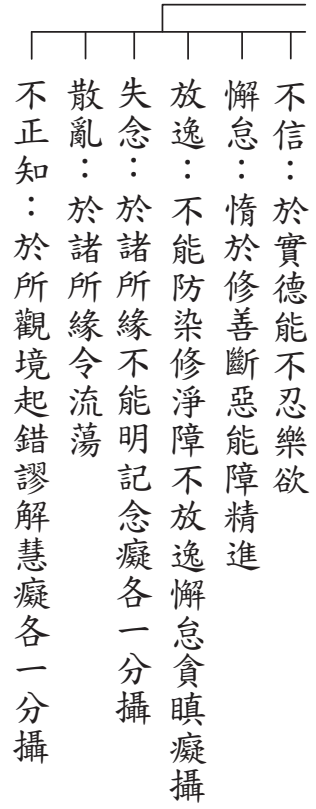 不信：於實德能不忍樂欲
懈怠：惰於修善斷惡能障精進
放逸：不能防染修淨障不放逸懈怠貪瞋癡攝
失念：於諸所緣不能明記念癡各一分攝
散亂：於諸所緣令流蕩
不正知：於所觀境起錯謬解慧癡各一分攝